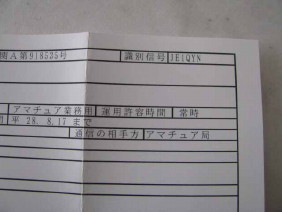 第A第918525号 識別信号 JE1QYN
アマチュア業務用 運用許容時間 常時
平 28. 8.17 まで
通信の相手方 アマチュア局